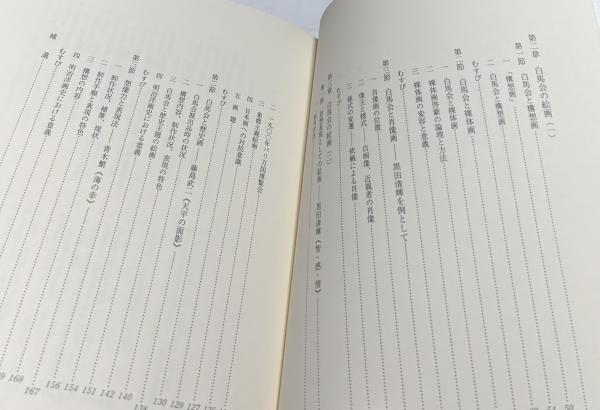 第二章 白馬会の絵画(一)
第一節 白馬会と構想画
一 「構想画」
二 白馬会と構想画
むすび
第二節 白馬会と裸体画
一 白馬会と裸体画
二 裸体画啓蒙の論理と方法
三 裸体画の変容と意義
むすび
第三節 白馬会と肖像画 黒田清輝を例として
一 肖像画の位置
二 像主と様式 自画像、近親者の肖像
三 様式の変遷 依頼による肖像
むすび
第三章 白馬会の絵画(二)
としての絵画 黒田清輝《智・感・情》
二 一九〇〇年パリ万国博覧会
三 象徴主義絵画
四 日本画への対抗意識
五 画題
むすび
第二節 白馬会と歴史画 藤島武二《天平の面影》
一 白馬会展出品時の状況
二 構想内容、制作状況、表現の特色
三 白馬会と歴史主題の絵画
四 明治洋画史における意義
むすび
第三節 想像力と表現法 青木繁《海の幸》
一 制作状況、補筆、現状
二 制作手順と表現の特色
三 構想の内容
四 明治洋画史における意義
むすび
補遺
126
127
129
130
138
140
142
151
154
156
167
168
50
54